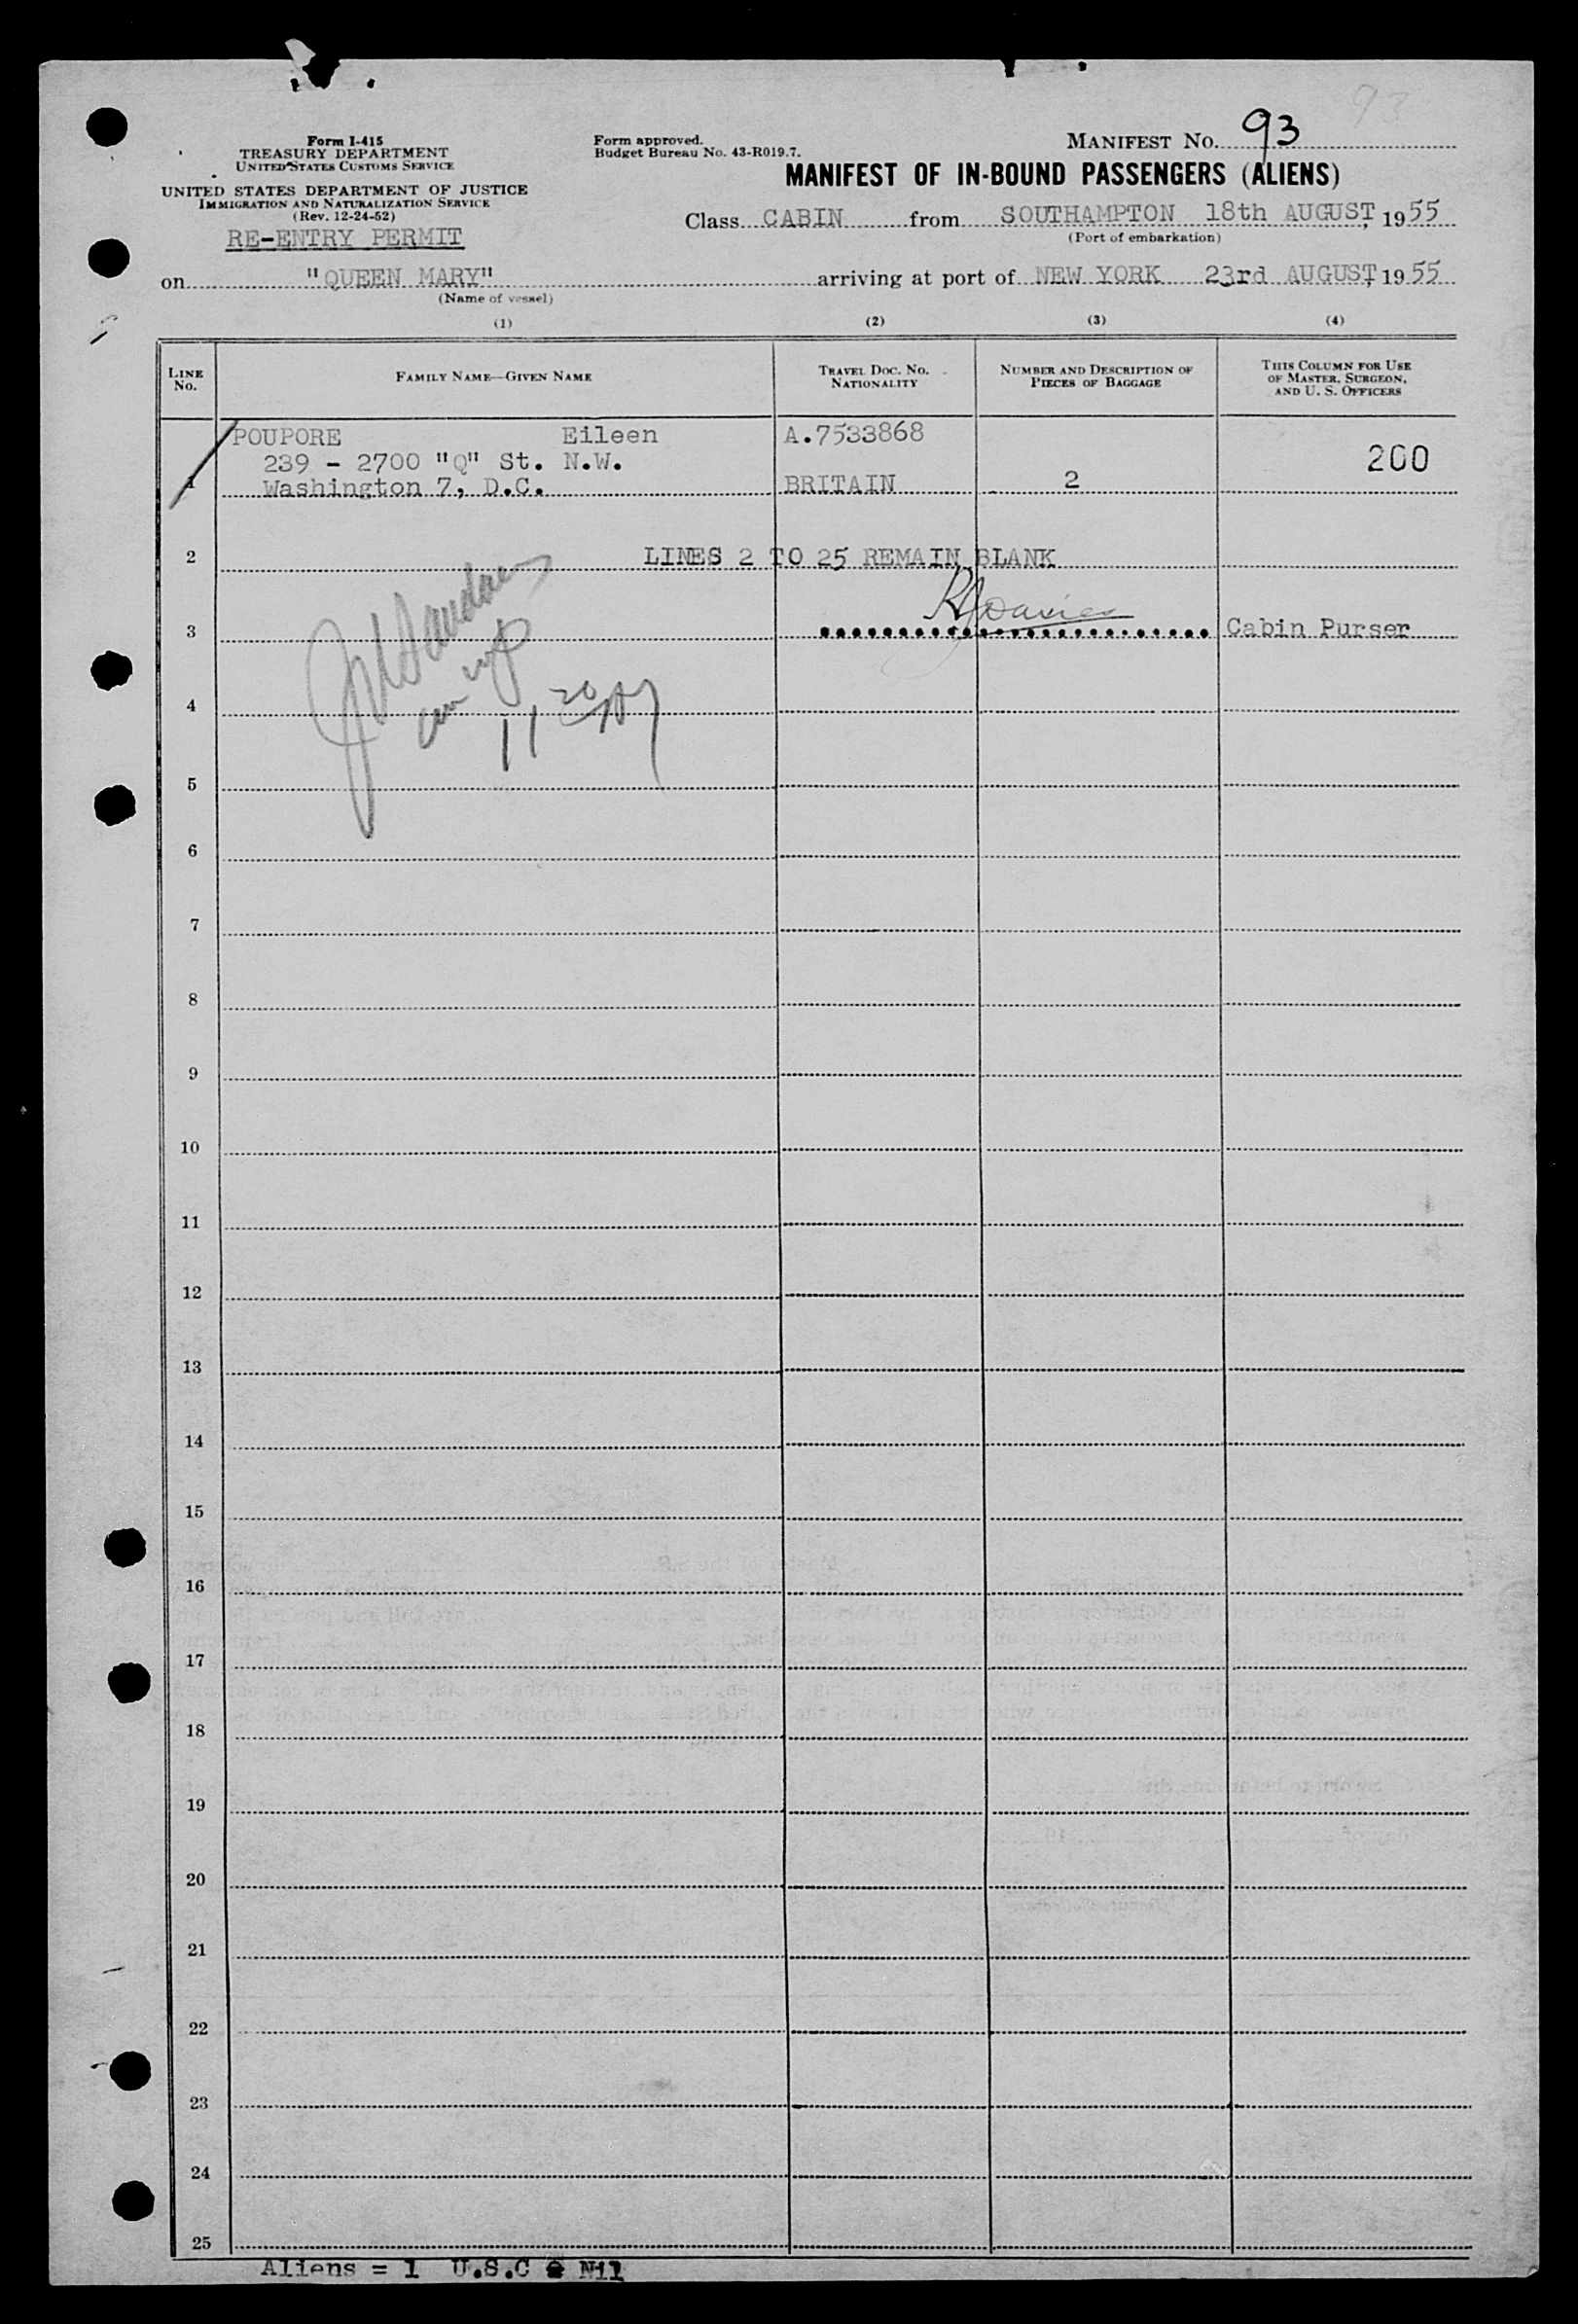 93
Form I-415
TREASURY DEPARTMENT
UNITED STATES CUSTOMS SERVICE
UNITED STATES DEPARTMENT OF JUSTICE
IMMIGRATION AND NATURALIZATION SERVICE
(Rev. 12-24-52)
RE-ENTRY PERMIT
Form approved.
Budget Bureau No. 43-R019.7.
MANIFEST NO. 93
MANIFEST OF IN-BOUND PASSENGERS (ALIENS)
Class CABIN from SOUTHAMPTON 18th AUGUST, 1955
(Port of embarkation)
on "QUEEN MARY" arriving at port of NEW YORK 23rd AUGUST, 1955
(Name of vessel)
(1) (2) (3) (4)
LINE No. FAMILY NAME—GIVEN NAME TRAVEL DOC. NO. NATIONALITY NUMBER AND DESCRIPTION OF PIECES OF BAGGAGE THIS COLUMN FOR USE OF MASTER, SURGEON, AND U. S. OFFICERS
POUPORE Eileen A.7533868
239 - 2700 "Q" St. N.W. 200
1 Washington 7, D.C. BRITAIN 2
2 LINES 2 TO 25 REMAIN BLANK
3 Cabin Purser
4
5
6
7
8
9
10
11
12
13
14
15
16
17
18
19
20
21
22
23
24
25
Aliens = 1 U.S.C = Nil